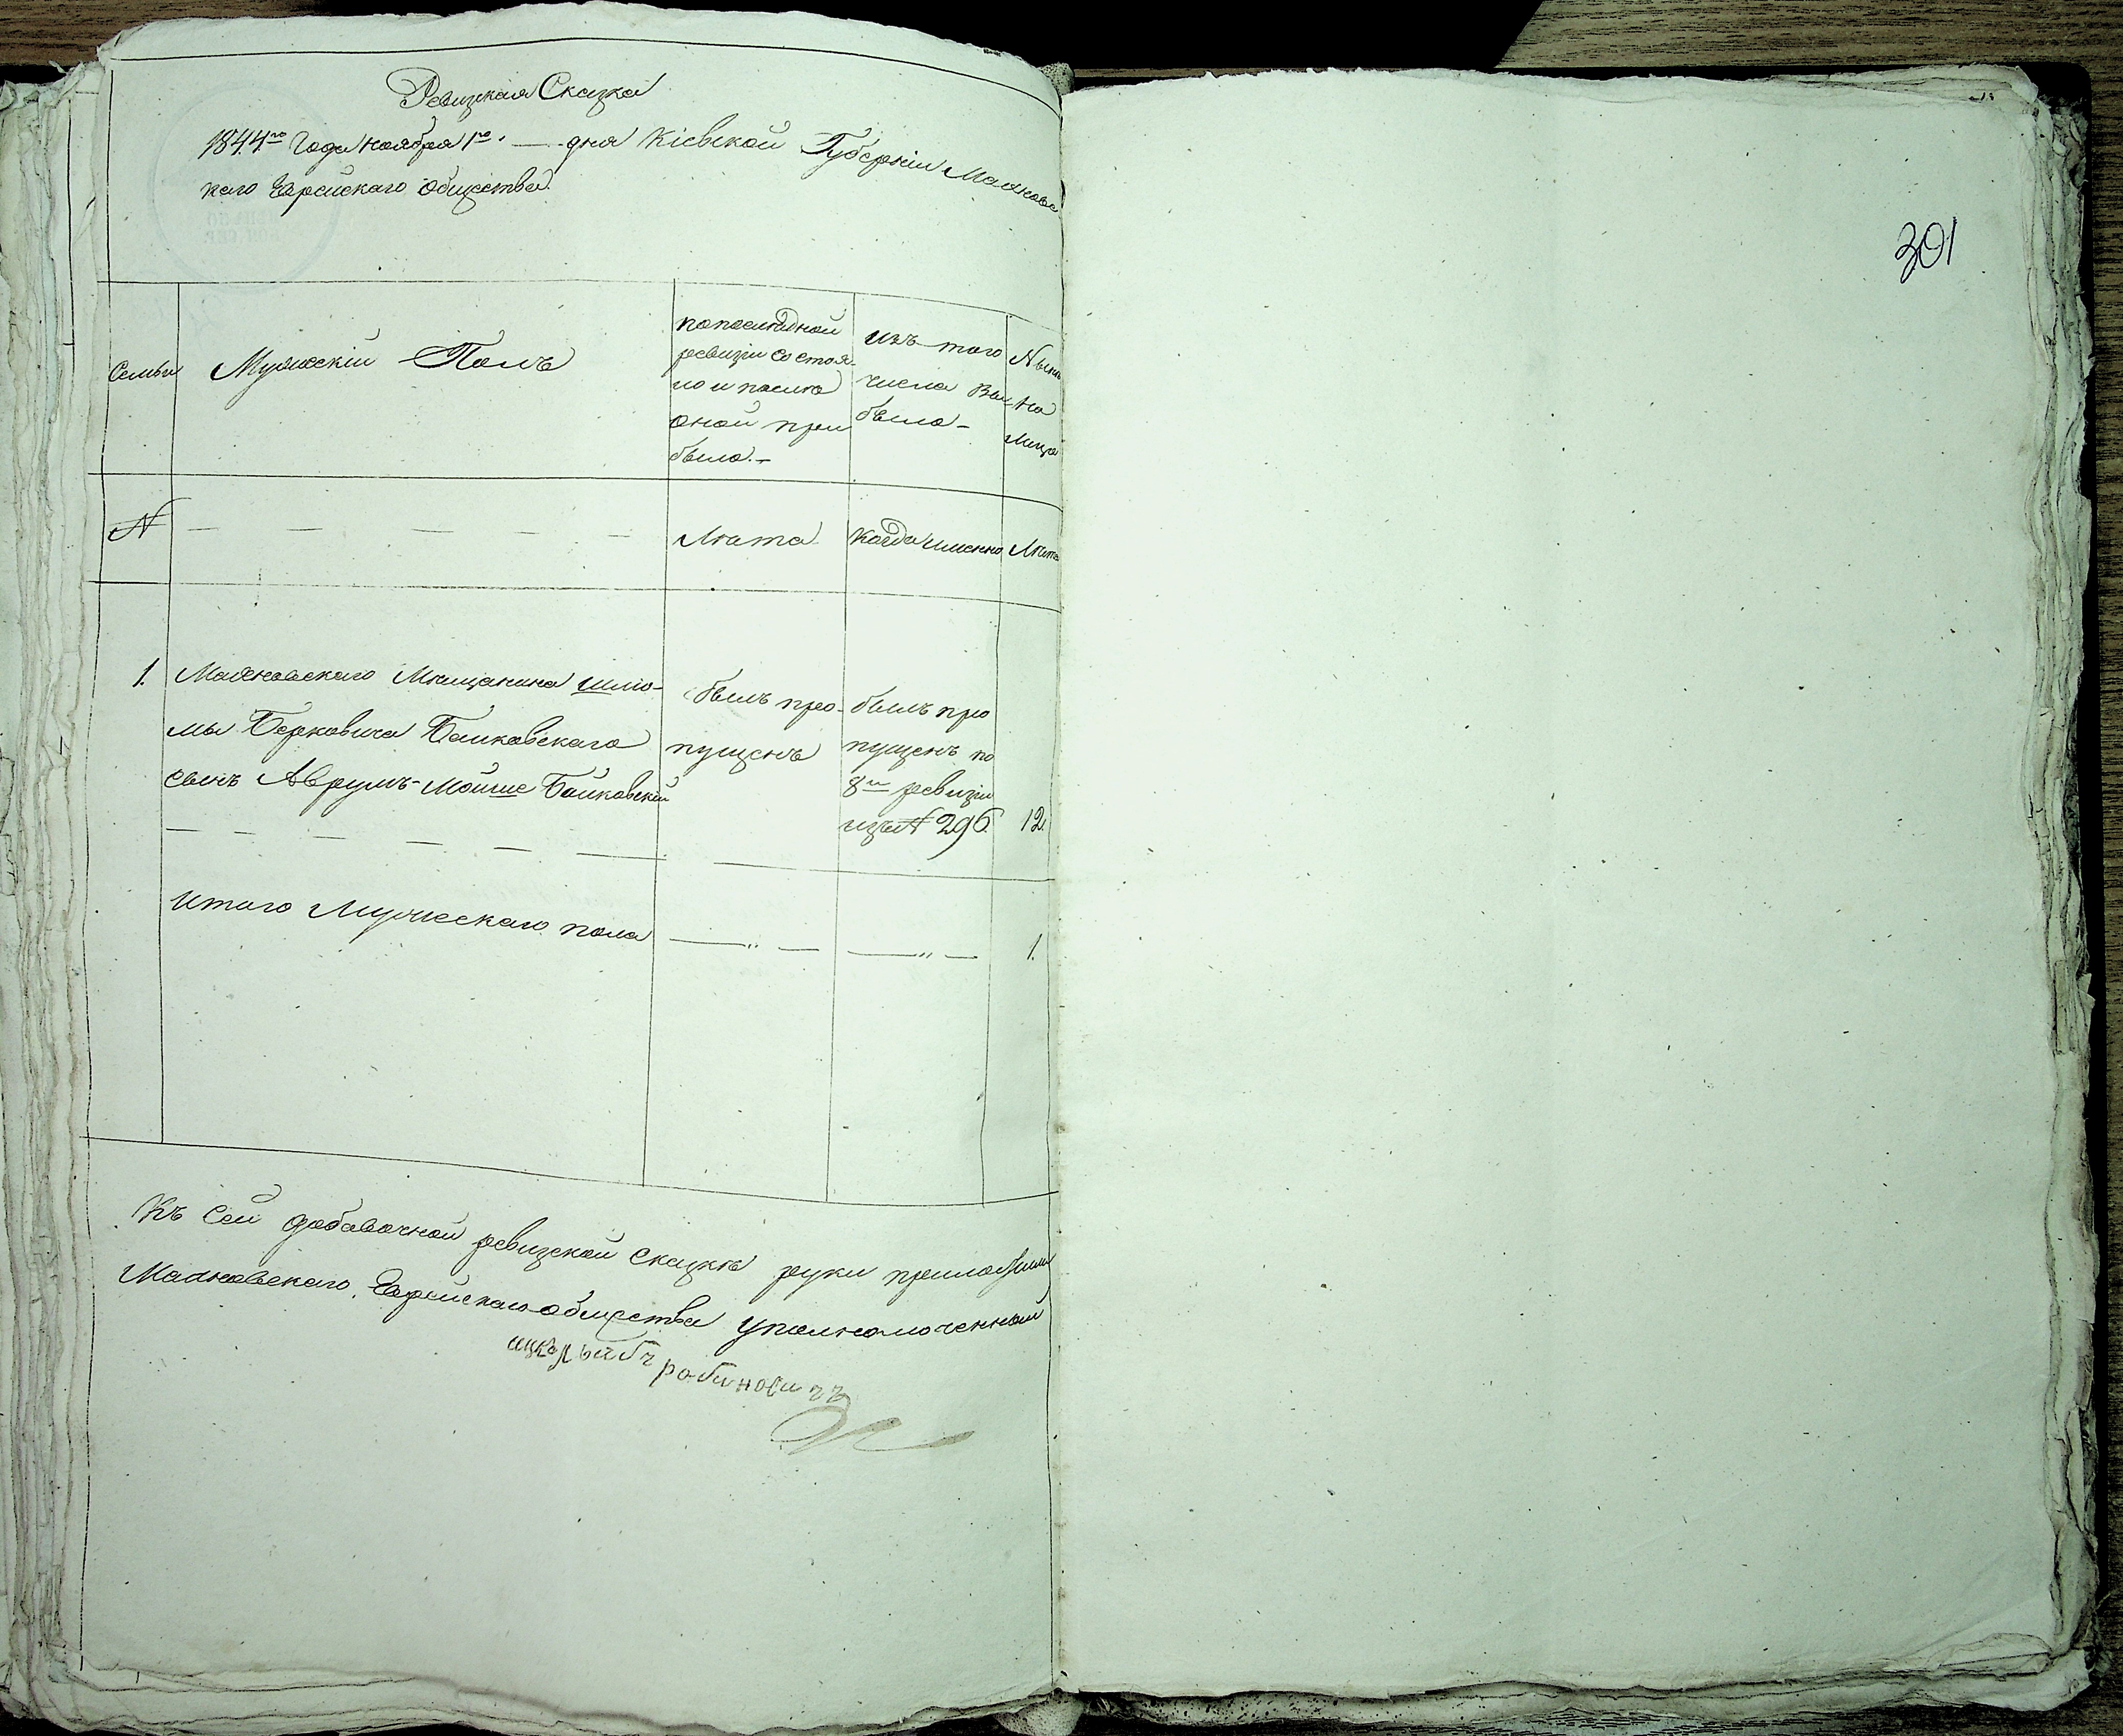 Ревизкая Сказка
1844го Года Ноября 1го дня Кіевской Губерніи Маяновс
каго Еврейскаго Общества
Семьи
Мужескій Полъ
попоследней
ревизіи состоя
ло и после
оной при
было.
изъ того
числа вы
было
Ныне
на
лицо
N
Лета
Когда именно
Лета
1.
Маяновскаго Мещанина Шлио-
мы Берковича Байковскаго
сынъ Аврумъ-Мойше Байковскій
былъ про-
пущенъ
былъ про
пущенъ по
8й ревизіи
изъ N 296
12.
Итого Мужескаго пола
1.
Къ сей добавочной ревизской сказке руки приложили
Маяновскаго Еврейскаго общества уполномоченный
ицко лейбъ рабиновичъ
301